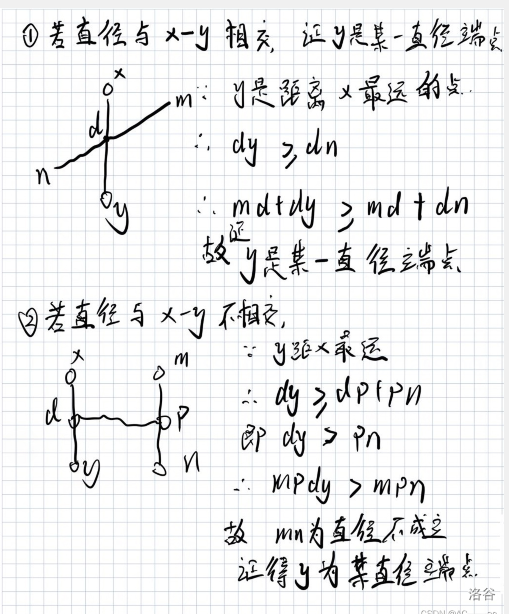 ① 若直径与 x-y 相交, 证 y是某一直径端点
x
m
d
n
y
∵ y是距离 x 最远的点.
∴ dy ≥ dn
∴ md+dy ≥ md + dn
故 y是某一直径端点
② 若直径与 x-y 不相交,
x
m
d
P
y
n
∵ y距x最远
∴ dy ≥ dP+Pn
即 dy > Pn
∴ mPdy > mPn
故 mn为直径不成立
证得 y为某直径端点.
洛谷